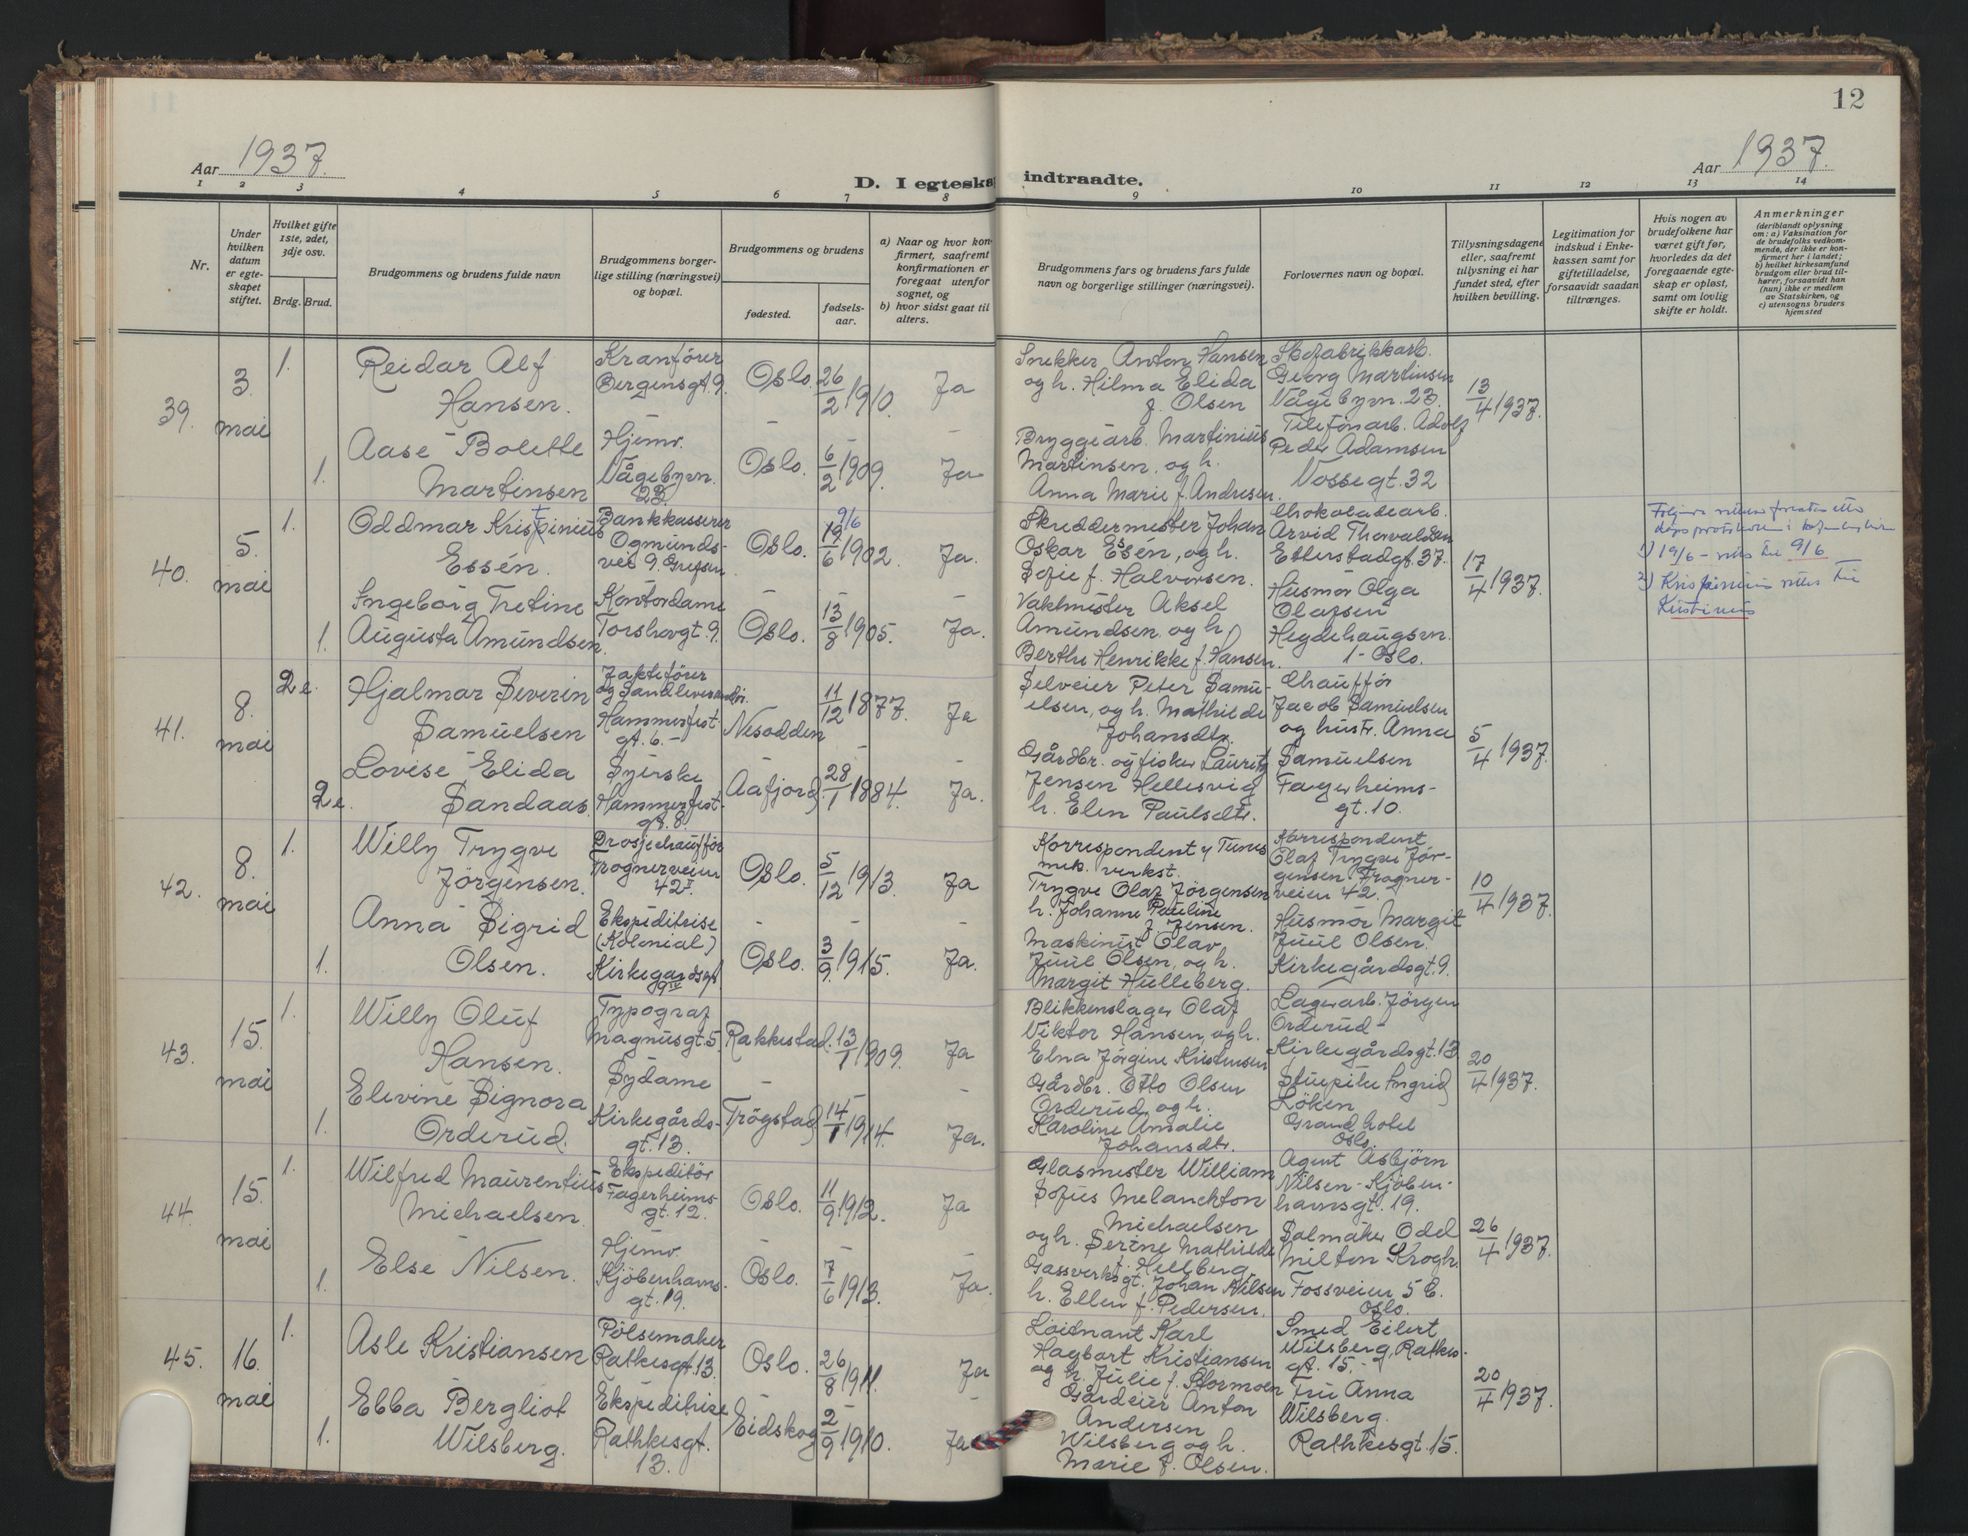 12
Aar 1937.
D. I egteska
indtraadte.
Aar 1937.
1 2 3 4 5 6 7 8 9 10 11 12 13 14
Nr.
Under hvilken datum er egteskapet stiftet.
Hvilket gifte 1ste, 2det, 3dje osv.
Brdg. Brud.
Brudgommens og brudens fulde navn
Brudgommens borgerlige stilling (næringsvei) og bopæl.
Brudgommens og brudens
fødested.
fødselsaar.
a) Naar og hvor konfirmert, saafremt konfirmationen er foregaat utenfor sognet, og
b) hvor sidst gaat til alters.
Brudgommens fars og brudens fars fulde navn og borgerlige stillinger (næringsvei).
Forlovernes navn og bopæl.
Tillysningsdagene eller, saafremt tillysning ei har fundet sted, efter hvilken bevilling.
Legitimation for indskud i Enkekassen samt for giftetilladelse, forsaavidt saadan tiltrænges.
Hvis nogen av brudefolkene har været gift før, hvorledes da det foregaaende egteskap er opløst, samt om lovlig skifte er holdt.
Anmerkninger
(deriblandt oplysning om: a) Vaksination for de brudefolks vedkommende, der ikke er konfirmert her i landet; b) hvilket kirkesamfund brudgom eller brud tilhører, forsaavidt han (hun) ikke er medlem av Statskirken, og c) utensogns bruders hjemsted
39.
3. mai
1.
Reidar Alf
Hansen.
Kranfører
Bergensgt. 9.
Oslo.
26/2 1910.
Ja
Snekker Anton Hansen
og h. Hilma Elida
f. Olsen
Skofabrikkarb.
Georg Martinsen
Vågebyvn. 23.
13/4 1937.
1.
Aase Bolette
Martinsen
Hjemv.
Vågebyvn.
23
Oslo.
6/2 1909.
Ja
Bryggearb. Martinius
Martinsen, og h.
Anna Marie f. Andresen.
Telefonarb. Adolf
Peder Adamsen
Vossegt. 32
40.
5. mai
1.
Oddmar Krispinius
Essén.
Bankkasserer
Ogmunds-
vei 9. Grefsen
Oslo.
9/6
19/6 1902.
Ja.
Skreddermester Johan
Oskar Essén, og h.
Sofie f. Halvorsen.
Chokoladearb.
Arvid Thorvaldsen
Etterstadgt. 37.
17/4 1937.
1) 19/6 – rettes til 9/6
2) Krispinius rettes til
Kristinius
1.
Ingeborg Tretine
Augusta Amundsen.
Kontordame
Torshovgt. 9.
Oslo.
13/8 1905.
Ja.
Vaktmester Aksel
Amundsen og h.
Berthe Henrikke f. Hansen.
Husmor Olga
Olafsen
Hegdehaugsvn.
1 - Oslo.
41.
8. mai
2e.
Hjalmar Severin
Samuelsen
Jaktefører
og Sandleverandør.
Hammerfest-
gt. 6. –
Nesodden
11/12 1877.
Ja
Selveier Peter Samu-
elsen, og h. Mathilde
Johansdtr.
Chauffør
Jacob Samuelsen
og hustr. Anna
Samuelsen
Fagerheims-
gt. 10.
5/4 1937.
2e.
Lovise Elida
Sandaas.
Syerske
Hammerfest-
gt. 8.
Aafjord.
28/1 1884.
Ja.
Gårdbr. og fisker Lauritz
Jensen Hellesvig
h. Elen Paulsdtr.
42.
8. mai
1.
Willy Trygve
Jörgensen.
Drosjechauffør
Frognerveien
42 I
Oslo.
5/12 1913.
Ja
Korrespondent v Tunes
mek. verkst.
Trygve Olaf Jörgensen
h. Johanne Pauline
f. Jensen.
Korrespondent
Olaf Trygve Jör-
gensen. Frogner-
veien 42.
10/4 1937.
1.
Anna Sigrid
Olsen.
Ekspeditrise
(Kolonial)
Kirkegårdsgt
9 IV
Oslo.
3/9 1915.
Ja.
Maskinist Olav
Juul Olsen, og h.
Margit Hulleberg.
Husmor Margit
Juul Olsen.
Kirkegårdsgt. 9.
43.
15. mai
1.
Willy Oluf
Hansen.
Typograf
Magnusgt. 5.
Rakkestad.
13/1 1909.
Ja
Blikkenslager Olaf
Viktor Hansen, og h.
Elna Jörgine Kristensen
Lagerarb. Jörgen
Orderud –
Kirkegårdsgt. 13
20/4 1937.
1.
Elevine Signora
Orderud.
Sydame
Kirkegårds-
gt. 13.
Trögstad
14/1 1914.
Ja.
Gårdbr. Otto Olsen
Orderud, og h.
Karoline Amalie
Johansdtr.
Stuepike Ingrid
Löken
Grand hotel
Oslo.
44.
15. mai
1.
Wilfred Maurentius
Michaelsen.
Ekspeditör
Fagerheims-
gt. 12.
Oslo.
11/9 1912.
Ja
Glasmester William
Sofus Melanckton
Michaelsen
og h. Serine Mathilde
f. Hellberg.
Agent Asbjörn
Nilsen - Kjöben-
havnsgt. 19.
26/4 1937.
1.
Else Nilsen.
Hjemv.
Kjöbenhavns-
gt. 19.
Oslo.
7/6 1913.
Ja.
Gassverksgt. Johan Nilsen
h. Ellen f. Pedersen.
Salmaker Odd
Milton Krogh.
Fossveien 5 E.
Oslo.
45.
16. mai
1.
Asle Kristiansen
Pölsemaker
Rathkesgt. 13.
Oslo.
26/8 1911.
Ja
Löitnant Karl
Hagbart Kristiansen
og h. Julie f. Stormoen
Smed Eilert
Wilsberg, Rathkes-
gt. 15. –
20/4 1937.
1.
Ebba Bergliot
Wilsberg.
Ekspeditrise
Rathkesgt.
13.
Eidskog
2/9 1910.
Ja
Gårdeier Anton
Andersen
Wilsberg og h.
Marie f. Olsen.
Fru Anna
Wilsberg.
Rathkesgt. 15.